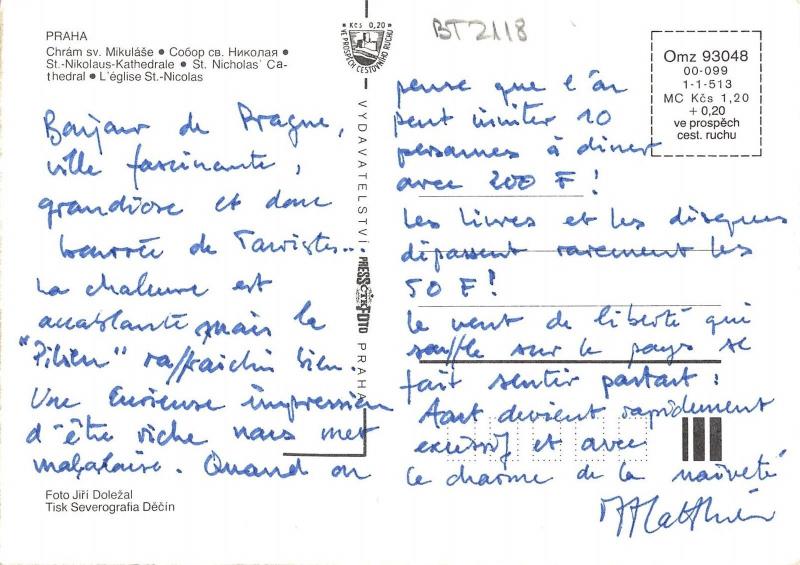 PRAHA
Chrám sv. Mikuláše ● Собор св. Николая ●
St.-Nikolaus-Kathedrale ● St. Nicholas' Ca-
thedral ● L'église St.-Nicolas
Bonjour de Prague,
ville fascinante,
grandiose et donc
bourrée de Touristes...
La chaleure est
accablante mais la
"Pilsen" raffraichi bien.
Une curieuse impression
d'être riche nous met
mal à l'aise. Quand on
Foto Jiří Doležal
Tisk Severografia Děčín
● Kčs 0,20 ●
VE PROSPĚCH CESTOVNÍHO RUCHU
VYDAVATELSTVÍ PRESSFOTO PRAHA
ČTK
BT2118
Omz 93048
00-099
1-1-513
MC Kčs 1,20
+ 0,20
ve prospěch
cest. ruchu
pense que l'on
peut inviter 10
personnes à diner
avec 200 F!
Les livres et les disques
dépassent rarement les
50 F!
Le vent de liberté qui
souffle sur le pays se
fait sentir partout :
tout devient rapidement
excessif et avec
le charme de la naïveté